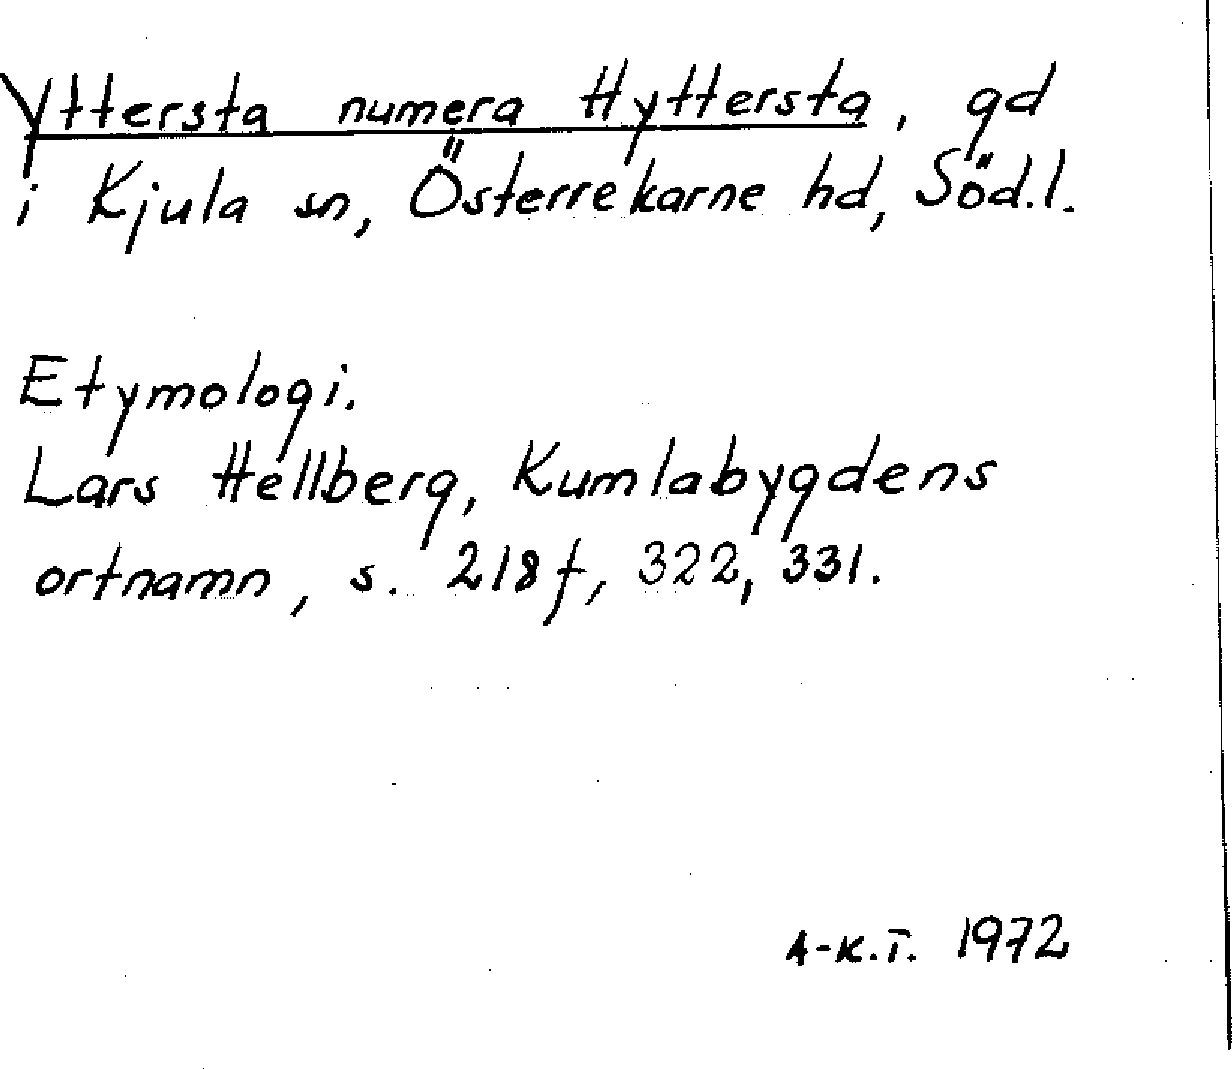 Yttersta numera Hyttersta, gd
i Kjula sn, Österrekarne hd, Söd.l.
Etymologi.
Lars Hellberg, Kumlabygdens
ortnamn, s. 218 f, 322, 331.
A-K.T. 1972